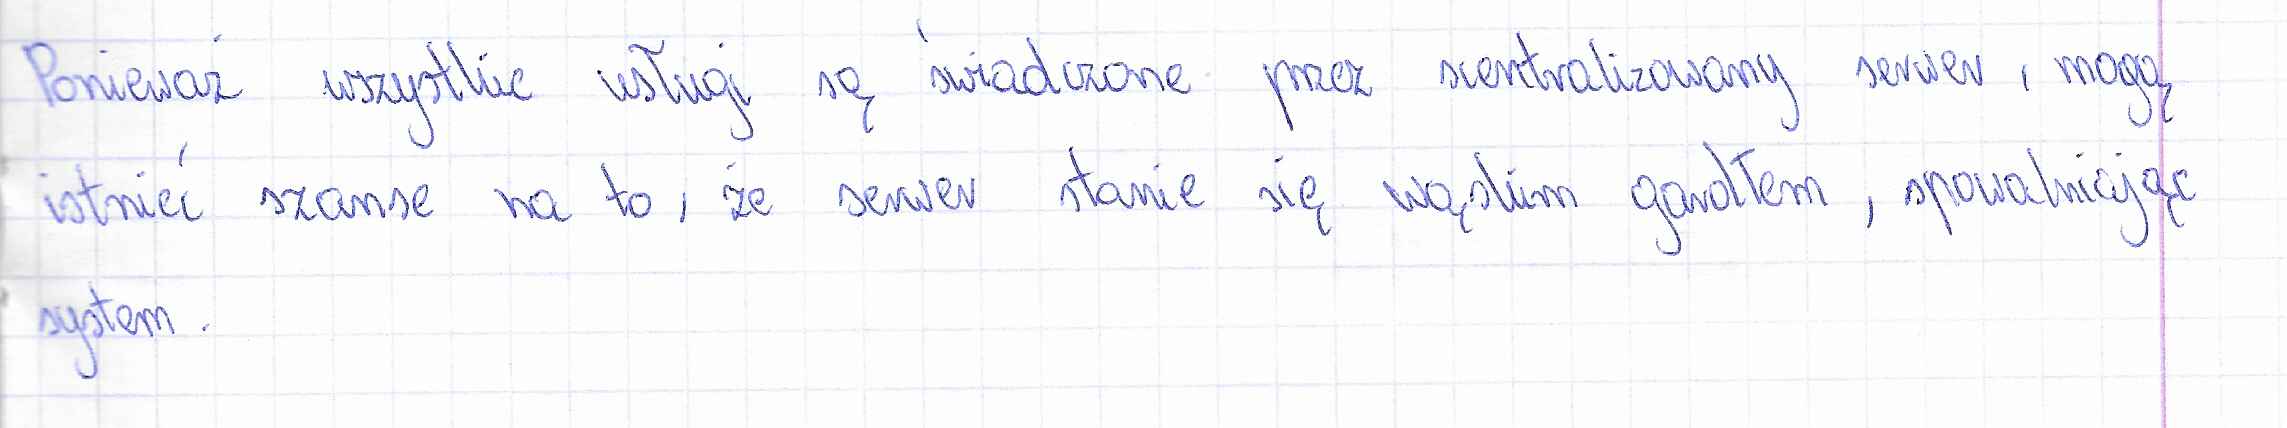 Ponieważ wszystkie usługi są świadczone przez scentralizowany serwer, mogą
istnieć szanse na to, że serwer stanie się wąskim gardłem, spowalniając
system.